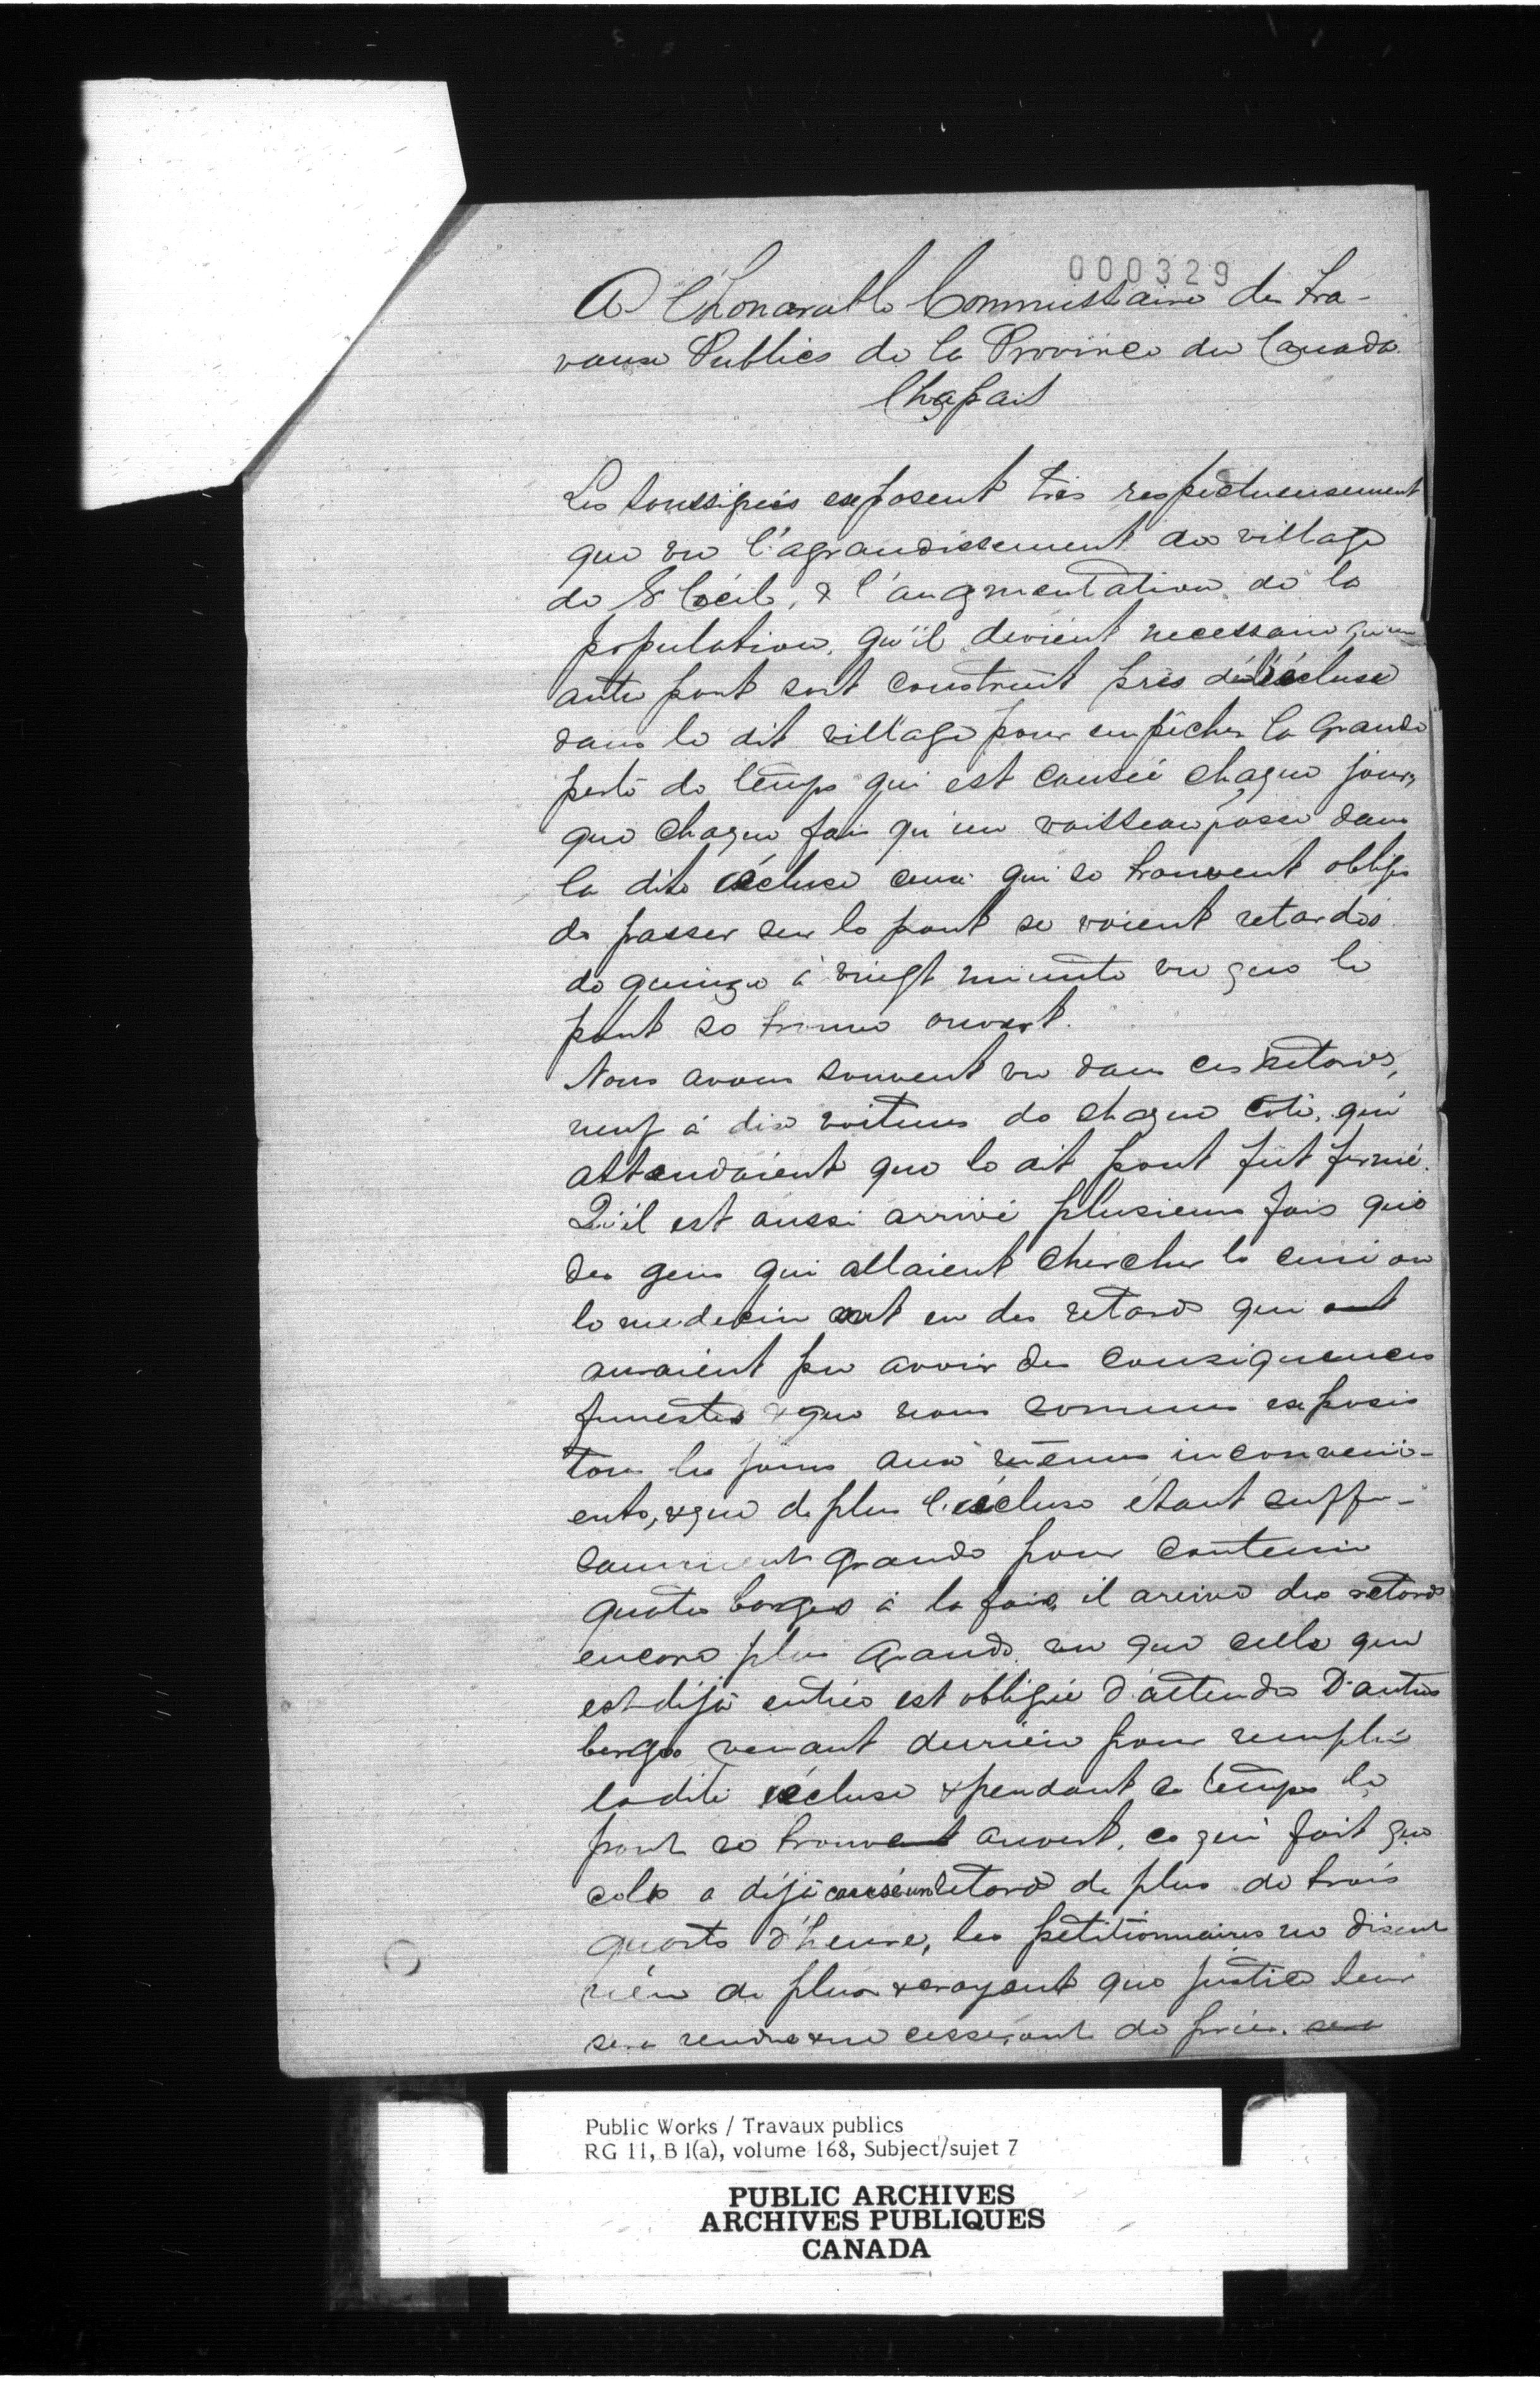 000329
A l'honorable Commissaire des Tra-
vaux Publics de la Province du Canada
Chapais
Les soussignés exposent très respectueusement
que vu l'agrandissement du village
de St Cécile, & l'augmentation de la
population, qu'il devient necessaire qu'un
autre pont soit construit près de l'écluse
dans le dit village pour empêcher la grande
perte de temps qui est causée chaque jour,
que chaque fois qu'un vaisseau passe dans
la dite écluse ceux qui se trouvent obligés
de passer sur le pont se voient retardés
de quinze à vingt minute vu que le
pont se trouve ouvert.
Nous avons souvent vu dans ces retards,
neuf à dix voitures de chaque coté, qui
attendaient que le dit pont fut fermé.
Qu'il est aussi arrivé plusieurs fois que
des gens qui allaient chercher le curé ou
le medecin ont eu des retards qui ont
auraient pu avoir des conséquences
funestes & que nous sommes exposés
tous les jours aux mêmes inconveni-
ents, & que de plus l'écluse étant suffi-
samment grande pour contenir
quatre barges à la fois, il arrive des retards
encore plus grands vu que celle qui
est déjà entrée est obligée d'attendre D'autres
berges venant derrière pour remplir
la dite écluse & pendant ce temps le
pont se trouvent ouvert, ce qui fait que
cela a déjà causé un retard de plus de trois
quarts d'heure, les pétitionnaires ne disent
rien de plus & croyant que justice leur
sera rendue & ne cesseront de prier. sera
Public Works / Travaux publics
RG 11, B 1(a), volume 168, Subject/sujet 7
PUBLIC ARCHIVES
ARCHIVES PUBLIQUES
CANADA